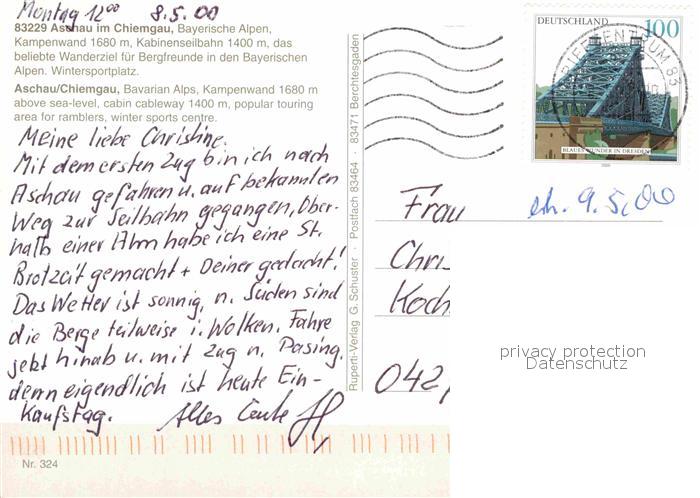 Montag 12⁰⁰ 8.5.00
83229 Aschau im Chiemgau, Bayerische Alpen,
Kampenwand 1680 m, Kabinenseilbahn 1400 m, das
beliebte Wanderziel für Bergfreunde in den Bayerischen
Alpen. Wintersportplatz.
Aschau/Chiemgau, Bavarian Alps, Kampenwand 1680 m
above sea-level, cabin cableway 1400 m, popular touring
area for ramblers, winter sports centre.
Meine liebe Christine.
Mit dem ersten Zug bin ich nach
Aschau gefahren u. auf bekannten
Weg zur Seilbahn gegangen, Ober-
halb einer Alm habe ich eine St.
Brotzeit gemacht + Deiner gedacht!
Das Wetter ist sonnig, n. Süden sind
die Berge teilweise i. Wolken. Fahre
jetzt hinab u. mit Zug n. Pasing,
denn eigendlich ist heute Ein-
kaufstag. Alles
Nr. 324
Ruperti-Verlag G. Schuster · Postfach 83464 · 83471 Berchtesgaden
DEUTSCHLAND 100
BLAUES WUNDER IN DRESDEN
BRIEFZENTRUM 83
Frau
Chri
Koch
042
erh. 9.5.00
privacy protection
Datenschutz